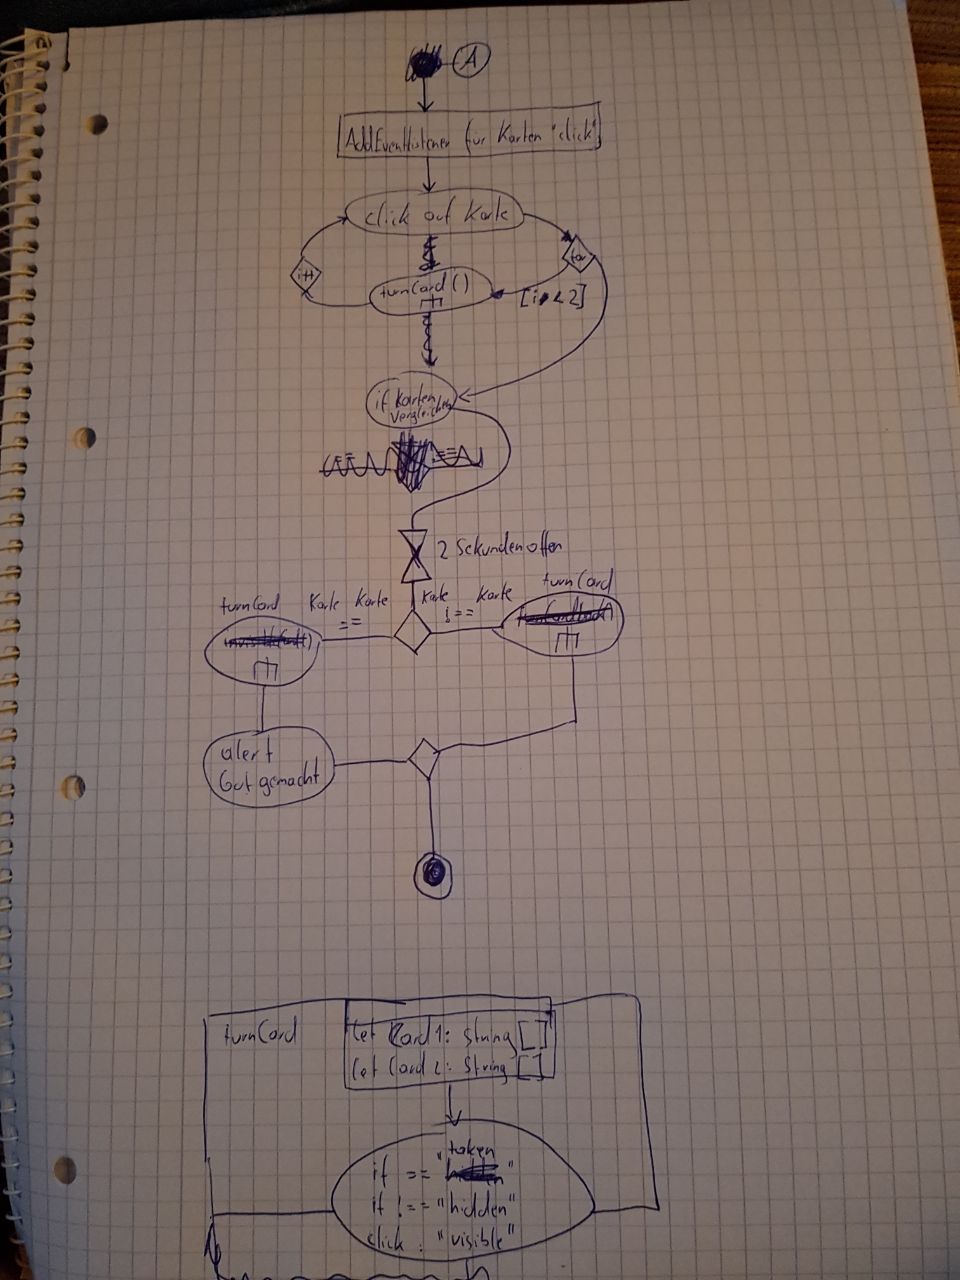 A
AddEventlistener für Karten "click"
click auf Karte
for
i++
turnCard ()
[i < 2]
if Karten
vergleichen
2 Sekunden offen
turnCard
turnCard
Karte == Karte
Karte !== Karte
alert
Gut gemacht
turnCard
let Card 1: String []
let Card 2: String []
if == "token"
if !== "hidden"
click : "visible"